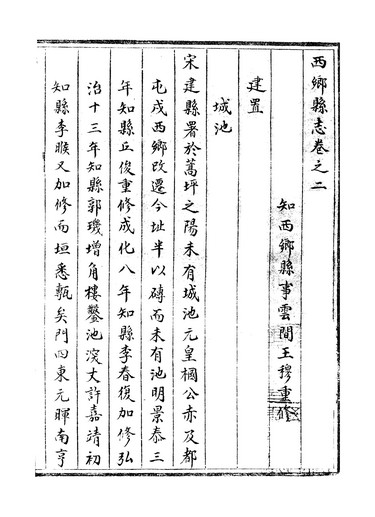 西鄉縣志卷之二
知西鄉縣事雲間王穆重修
建置
城池
宋建縣署於蒿坪之陽未有城池元皇慶國公赤及都
屯戌西鄉改遷今址半以磚而未有池明景泰三
年知縣丘俊重修成化八年知縣李春復加修弘
治十三年知縣郭璣增角樓鑿池深丈許嘉靖初
知縣李㬋又加修而垣悉甎矣門四東元暉南亨